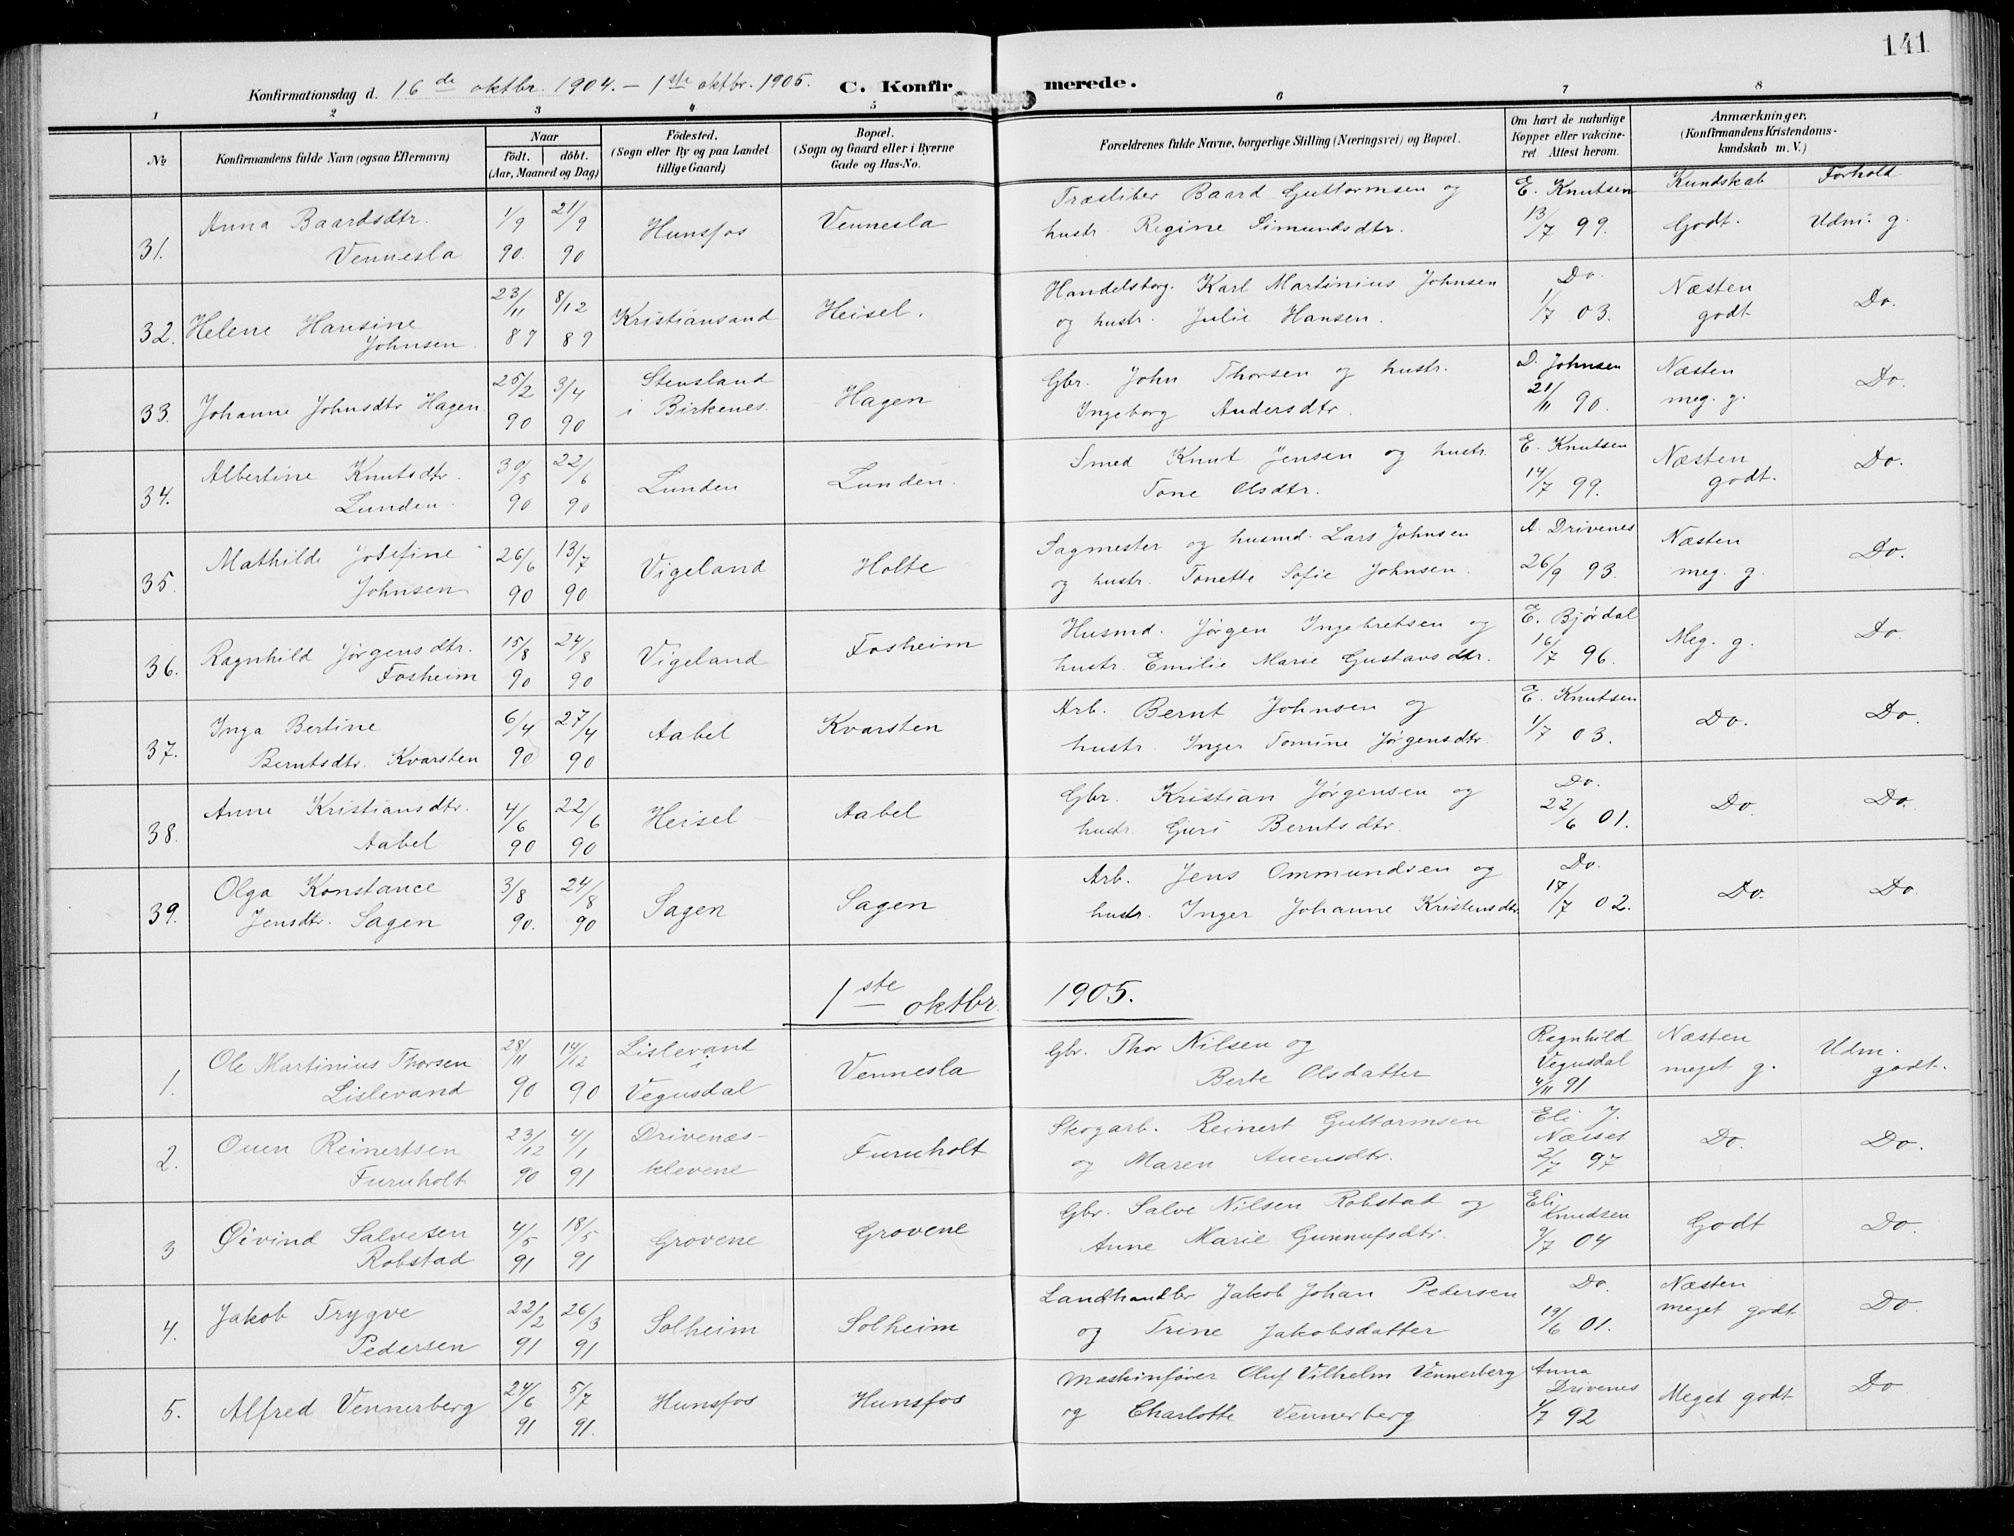 141
Konfirmationsdag d. 16de oktbr. 1904. – 1ste oktbr. 1905. C. Konfirmerede.
1 2 3 4 5 6 7 8
No Konfirmandens fulde Navn (ogsaa Efternavn) Naar født, døbt. (Aar, Maaned og Dag) Fødested. (Sogn eller By og paa Landet tillige Gaard) Bopæl. (Sogn og Gaard eller i Byerne Gade og Hus-No. Forældrenes fulde Navne, borgerlige Stilling (Næringsvei) og Bopæl. Om havt de naturlige Kopper eller vakcineret. Attest herom. Anmærkninger. (Konfirmandens Kristendomskundskab m. V.)
Kundskab Forhold
31. Anna Baardsdtr. Vennesla 1/9 90. 21/9 90 Hunsfos Vennesla Træsliber Baard Guttormsen og hustr. Regine Simundsdtr. E. Knutsen 13/7 99. Godt. Udm. g.
32. Helene Hansine Johnsen. 23/11 89 8/12 89 Kristiansand Heisel. Handelsborg. Karl Martinius Johnsen og hustr. Julie Hansen. Do. 1/7 03. Næsten godt Do.
33. Johanne Johnsdtr Hagen 25/2 90 3/4 90 Stensland i Birkenes. Hagen Gbr. John Thorsen og hustr. Ingeborg Andersdtr. D. Johnsen 21/11 90. Næsten meg. g. Do.
34. Albertine Knutsdtr. Lunden. 30/5 90 22/6 90 Lunden Lunden. Smed Knut Jensen og hustr. Tone Olsdtr. E. Knutsen 14/7 99. Næsten godt. Do.
35. Mathilde Josefine Johnsen 26/6 90 13/7 90 Vigeland Holte Sagmester og husmd. Lars Johnsen og hustr. Tonette Sofie Johnsen. A. Drivenes 26/9 93. Næsten meg. g. Do.
36. Ragnhild Jørgensdtr. Fosheim 15/8 90 24/8 90 Vigeland Fosheim Husmd. Jørgen Ingebretsen og hustr. Emilie Marie Gustavsdtr. E. Bjørdal 16/7 96. Meg. g. Do.
37. Inga Bertine Berntsdtr. Kvarsten 6/4 90 27/4 90 Aabel Kvarsten Arb. Bernt Johnsen og hustr. Inger Tomine Jørgensdtr. E. Knutsen 1/7 03. Do. Do.
38. Anne Kristiansdtr. Aabel 4/6 90 22/6 90 Heisel Aabel Gbr. Kristian Jørgensen og hustr. Guri Berntsdtr. Do. 22/6 01. Do. Do.
39. Olga Konstance Jensdtr. Sagen 3/8 90. 24/8 90 Sagen Sagen Arb. Jens Ommundsen og hustr. Inger Johanne Kristensdtr. Do. 17/7 02. Do. Do.
1ste oktbr. 1905.
1. Ole Martinius Thorsen Lislevand 28/11 90 14/12 90 Lislevand i Vegusdal Vennesla Gbr. Thor Nilsen og Berte Olsdatter Ragnhild Vegusdal 4/11 91 Næsten meget g. Udm. godt.
2. Ouen Reinertsen Furuholt 23/12 90 4/1 91 Drivenæsklevene Furuholt Skogarb. Reinert Guttormsen og Maren Auensdtr. Eli J. Næsset 2/7 97 Do. Do.
3 Øivind Salvesen Robstad 4/5 91 18/5 91 Grovene Grovene Gbr. Salve Nilsen Robstad og Anne Marie Gunnufsdtr. Eli Knudsen 9/7 04 Godt Do.
4. Jakob Trygve Pedersen 22/2 91 26/3 91 Solheim Solheim Landhandler Jakob Johan Pedersen og Trine Jakobsdatter Do 19/6 01. Næsten meget godt Do.
5. Alfred Vennerberg 24/6 91 5/7 91. Hunsfos Hunsfos Maskinfører Oluf Vilhelm Vennerberg og Charlotte Vennerberg Anna Drivenes 1/7 92 Meget godt Do